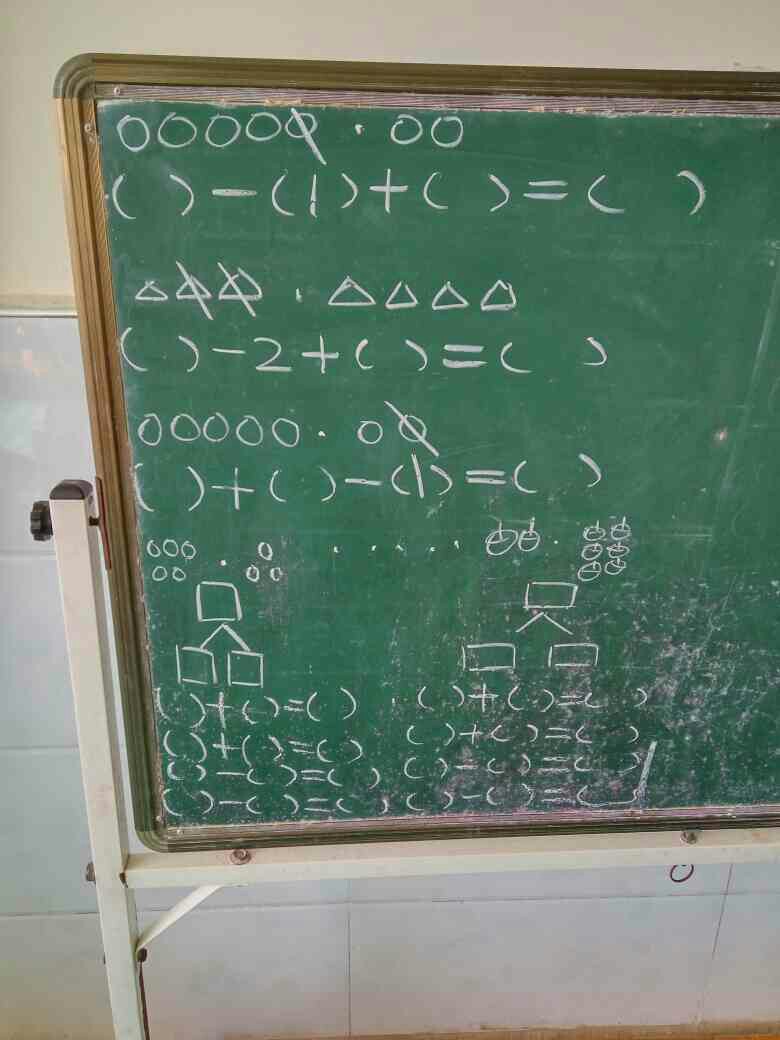 ( ) - (1) + ( ) = ( )
( ) - 2 + ( ) = ( )
( ) + ( ) - (1) = ( )
( ) + ( ) = ( ) ( ) + ( ) = ( )
( ) + ( ) = ( ) ( ) + ( ) = ( )
( ) - ( ) = ( ) ( ) - ( ) = ( )
( ) - ( ) = ( ) ( ) - ( ) = ( )